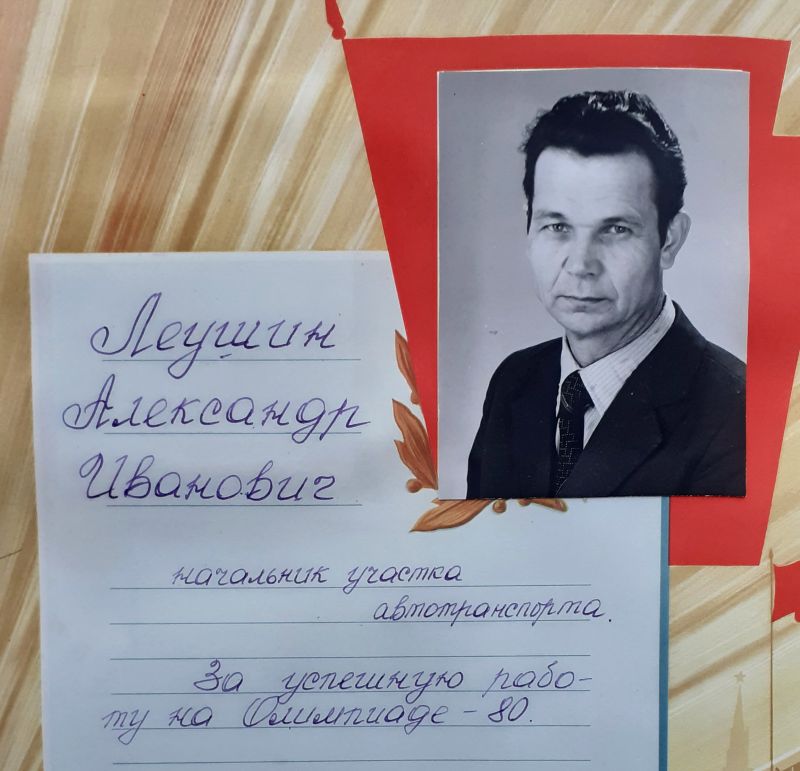 Леушин
Александр
Иванович
начальник участка
автотранспорта.
За успешную рабо-
ту на Олимпиаде-80.